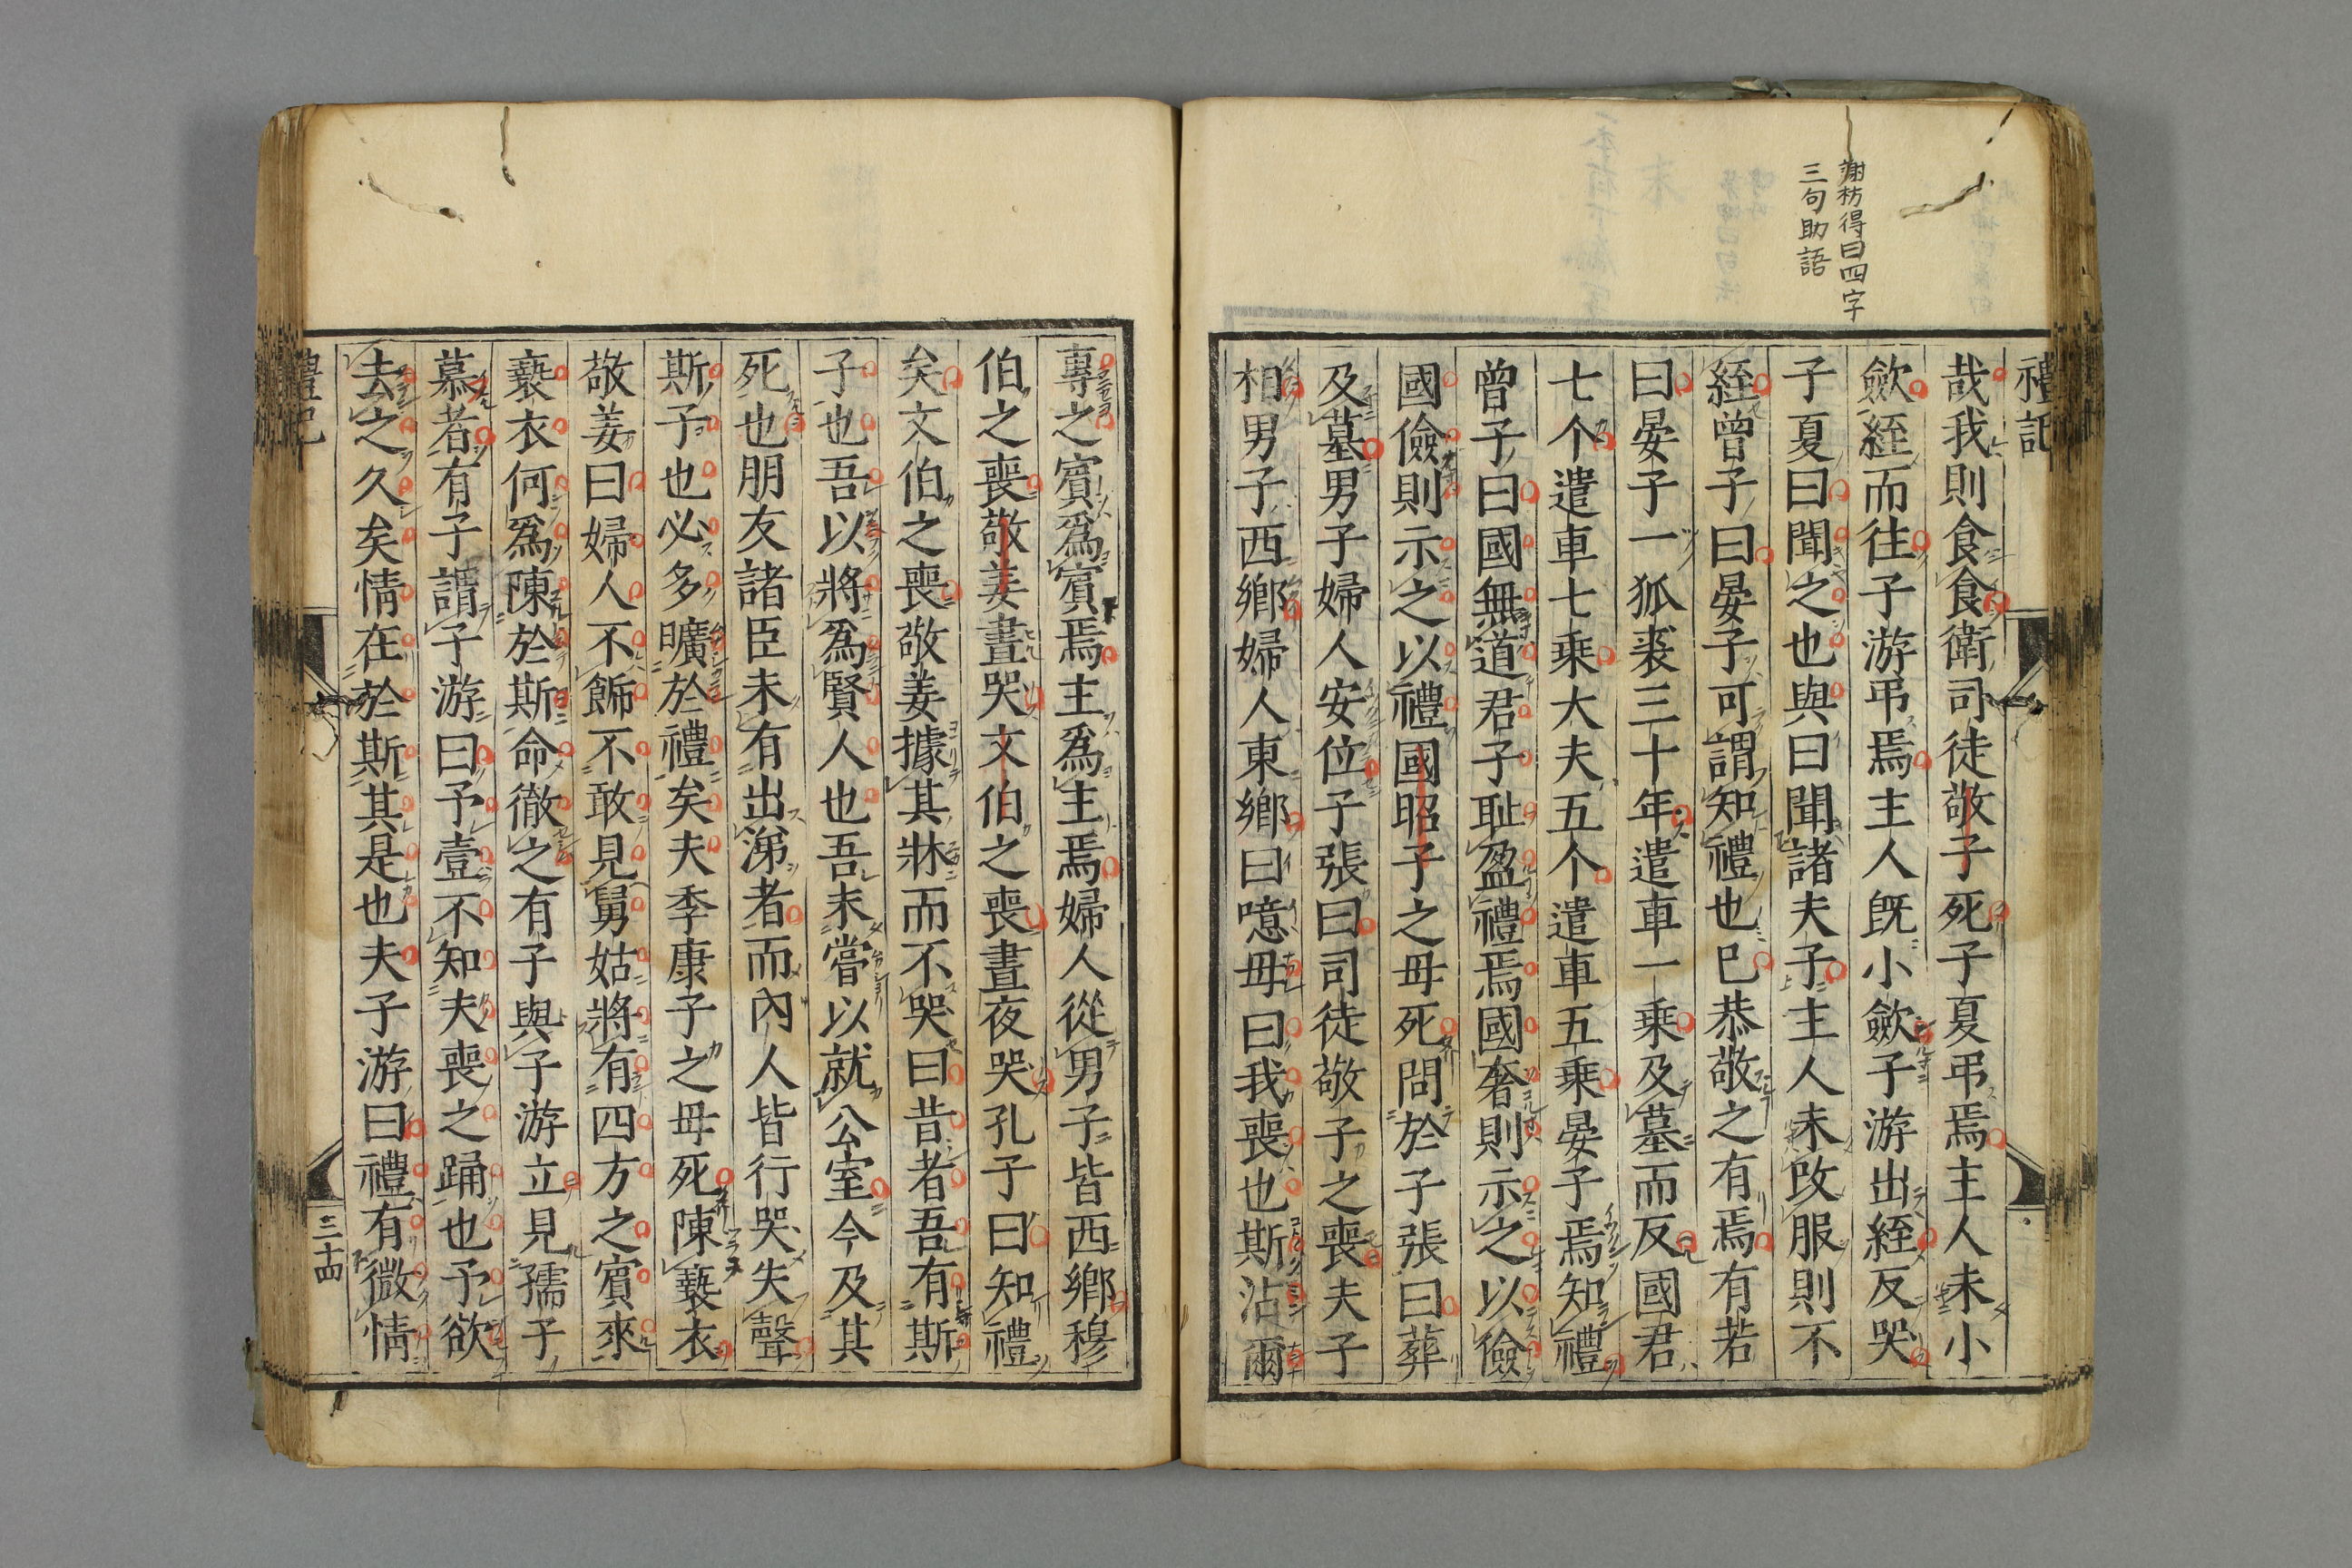 謝枋得曰四字
三句助語
禮記
哉我則食食衛司徒敬子死子夏弔焉主人未小
斂絰而往子游弔焉主人旣小斂子游出絰反哭
子夏曰聞之也與曰聞諸夫子主人未改服則不
絰曾子曰晏子可謂知禮也巳恭敬之有焉有若
曰晏子一狐裘三十年遣車一乘及墓而反國君
七个遣車七乘大夫五个遣車五乘晏子焉知禮
曾子曰國無道君子耻盈禮焉國奢則示之以儉
國儉則示之以禮國昭子之母死問於子張曰葬
及墓男子婦人安位子張曰司徒敬子之喪夫子
相男子西鄉婦人東鄉曰噫毋曰我喪也斯沾爾
專之賓爲賓焉主爲主焉婦人從男子皆西鄉穆
伯之喪敬姜晝哭文伯之喪晝夜哭孔子曰知禮
矣文伯之喪敬姜據其牀而不哭曰昔者吾有斯
子也吾以將爲賢人也吾未嘗以就公室今及其
死也朋友諸臣未有出涕者而內人皆行哭失聲
斯子也必多曠於禮矣夫季康子之母死陳褻衣
敬姜曰婦人不飾不敢見舅姑將有四方之賓來
褻衣何爲陳於斯命徹之有子與子游立見孺子
慕者有子謂子游曰予壹不知夫喪之踊也予欲
去之久矣情在於斯其是也夫子游曰禮有微情
禮記
三十四